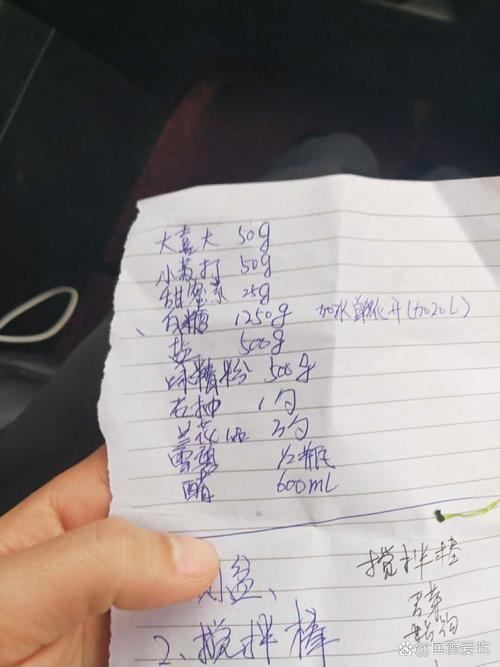 大喜大 50g
小苏打 50g
甜蜜素 25g
、白糖 1250g 加水融化开(加20L)
盐 500g
味精粉 500g
老抽 1勺
兰花油 3勺
雪碧 1/2瓶
醋 600mL
盆、
2、搅拌棒
搅拌棒
百度@匡缘爱吃